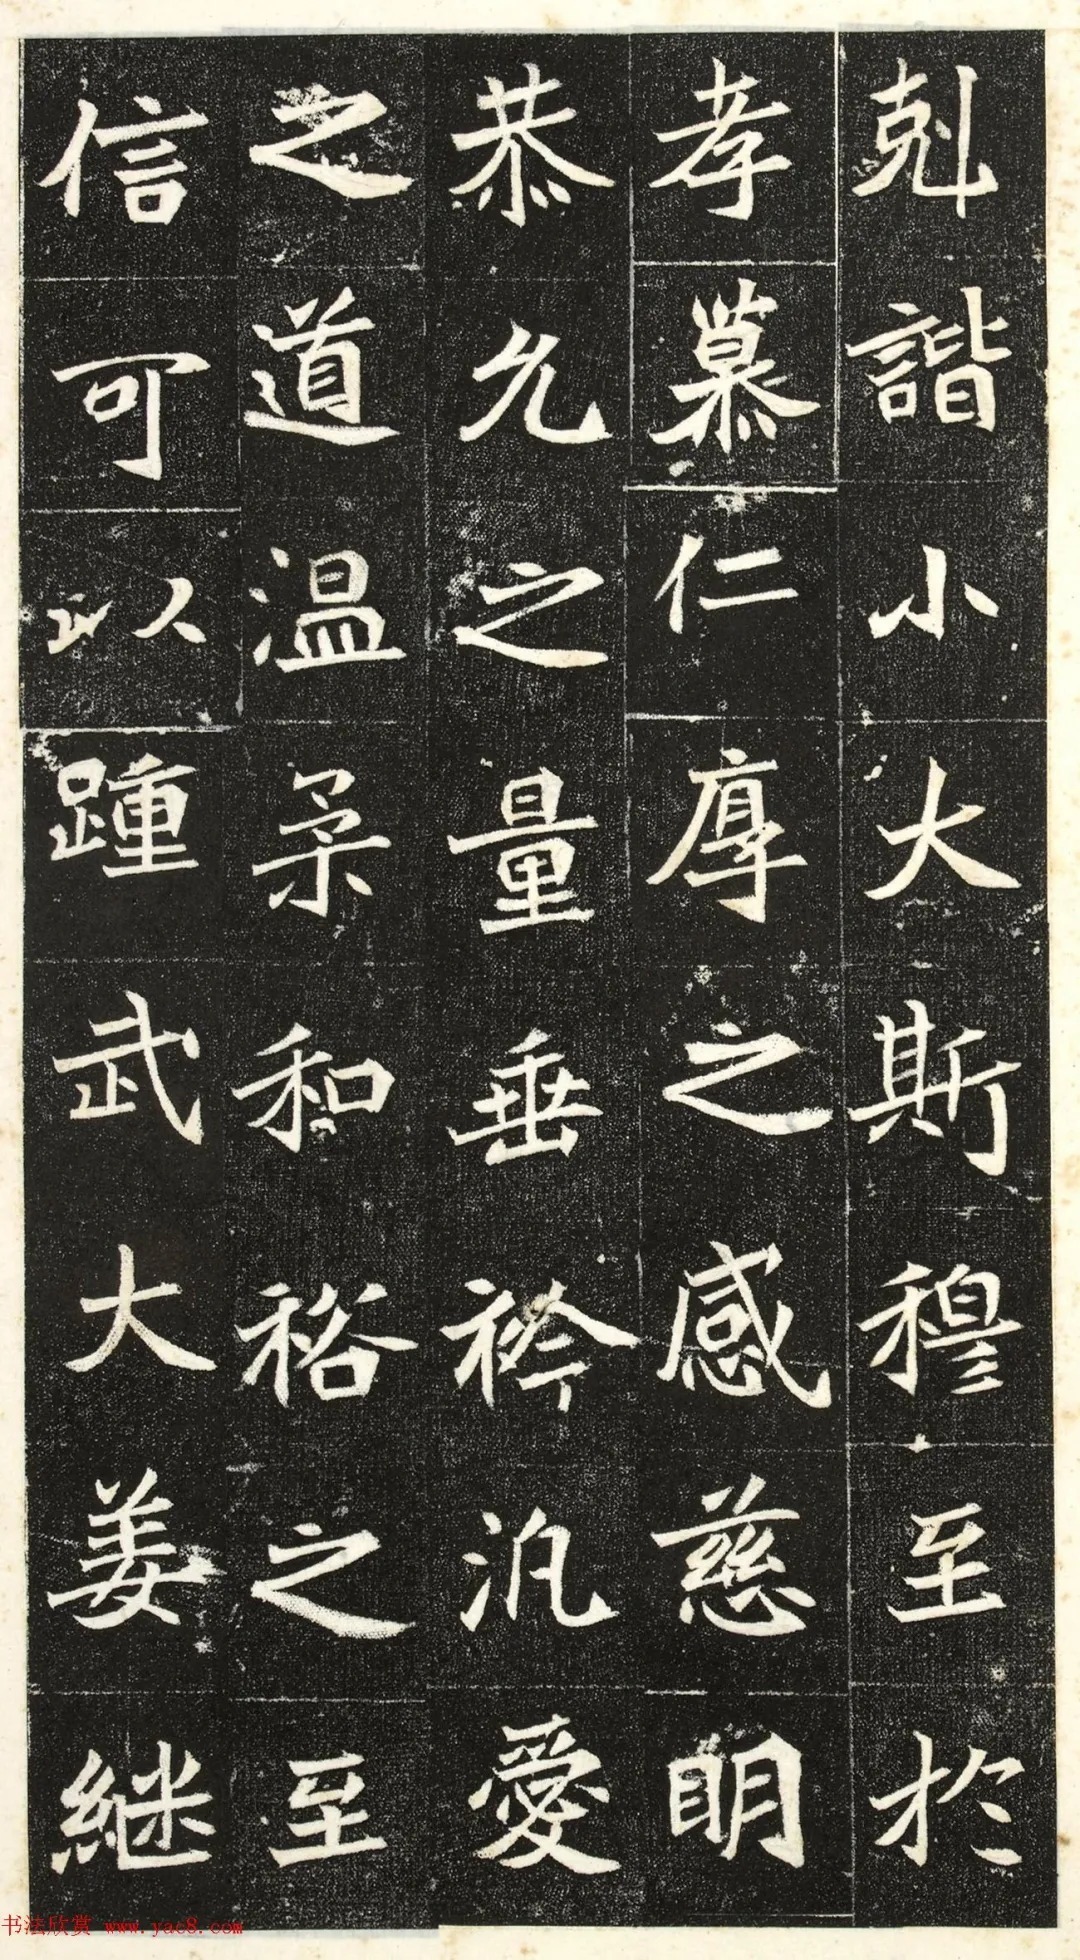 剋諧小大斯穆至於
孝慕仁厚之感慈明
恭允之量垂衿汎愛
之道温柔和裕之至
信可以踵武大姜継
书法欣赏 www.yac8.com